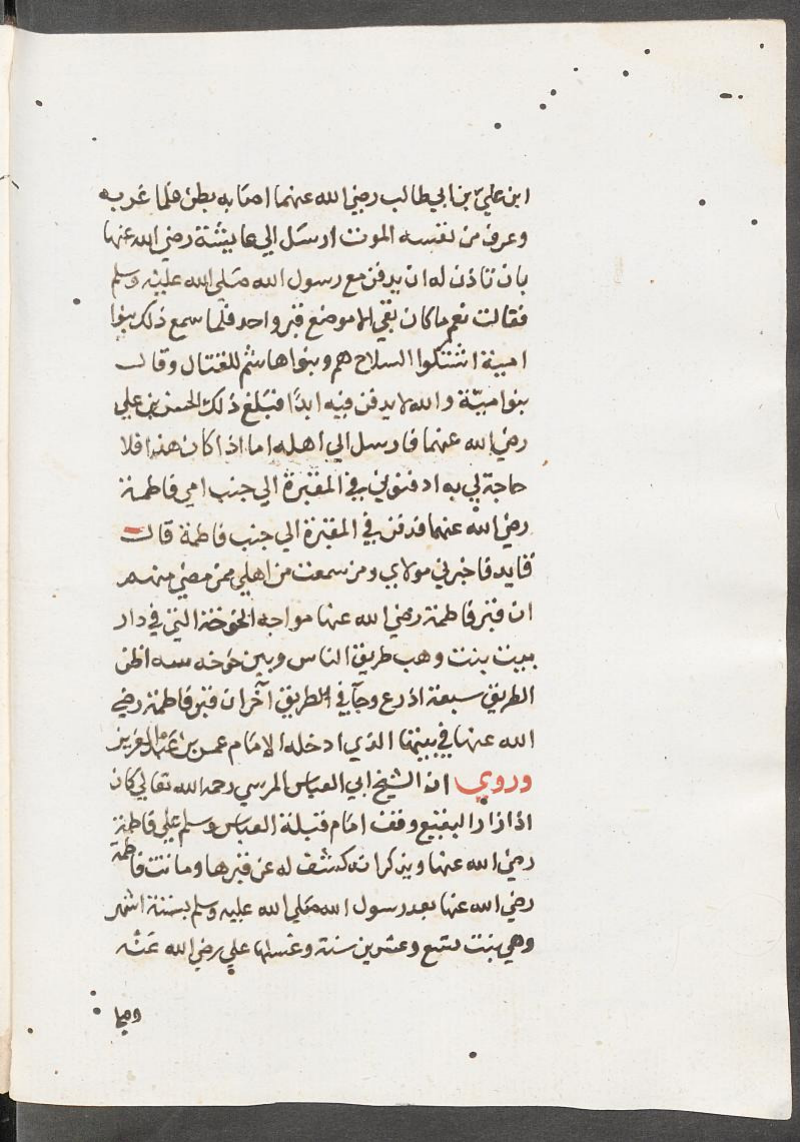 ابن علي بن ابي طالب رضي الله عنهما اصابه بطن فلما عربه
وعرف من نفسه الموت ارسل الي عايشة رضي الله عنها
بان تاذن له ان يدفن مع رسول الله صلي الله عليه وسلم
فقالت نعم ما كان بقي الا موضع قبر واحد فلما سمع ذلك بنوا
امية اشتكوا السلاح هم وبنوا هاشم للقتال وقالت
بنوا مية والله لا يدفن فيه ابدًا فبلغ ذلك الحسن بن علي
رضي الله عنهما فارسل الي اهله اما اذا كان هذا فلا
حاجة لي به ادفنوني في المقبرة الي جنب امي فاطمة
رضي الله عنهما فدفن في المقبرة الي جنب فاطمة قالت
قايد فاخبرني مولاي ومن سمعت من اهلي ممن مضي منهم
ان قبر فاطمة رضي الله عنها مواجه الخوخة التي في دار
بيت بنت وهب طريق الناس وبين خوخه سه اظن
الطريق سبعة اذرع وجآ في الطريق آخر ان قبر فاطمة رضي
الله عنها في بيتها الذي ادخله الامام عمر بن عبد العزيز
وروي ان الشيخ ابي العباس المرسي رحمه الله تعالي كان
اذا زار البقيع وقف امام قبلة العباس وسلم علي فاطمة
رضي الله عنها ويذكر انه كشف له عن قبرها وماتت فاطمة
رضي الله عنها بعد رسول الله صلي الله عليه وسلم بستة اشهر
وهي بنت تسع وعشرين سنة وغسلها علي رضي الله عنه